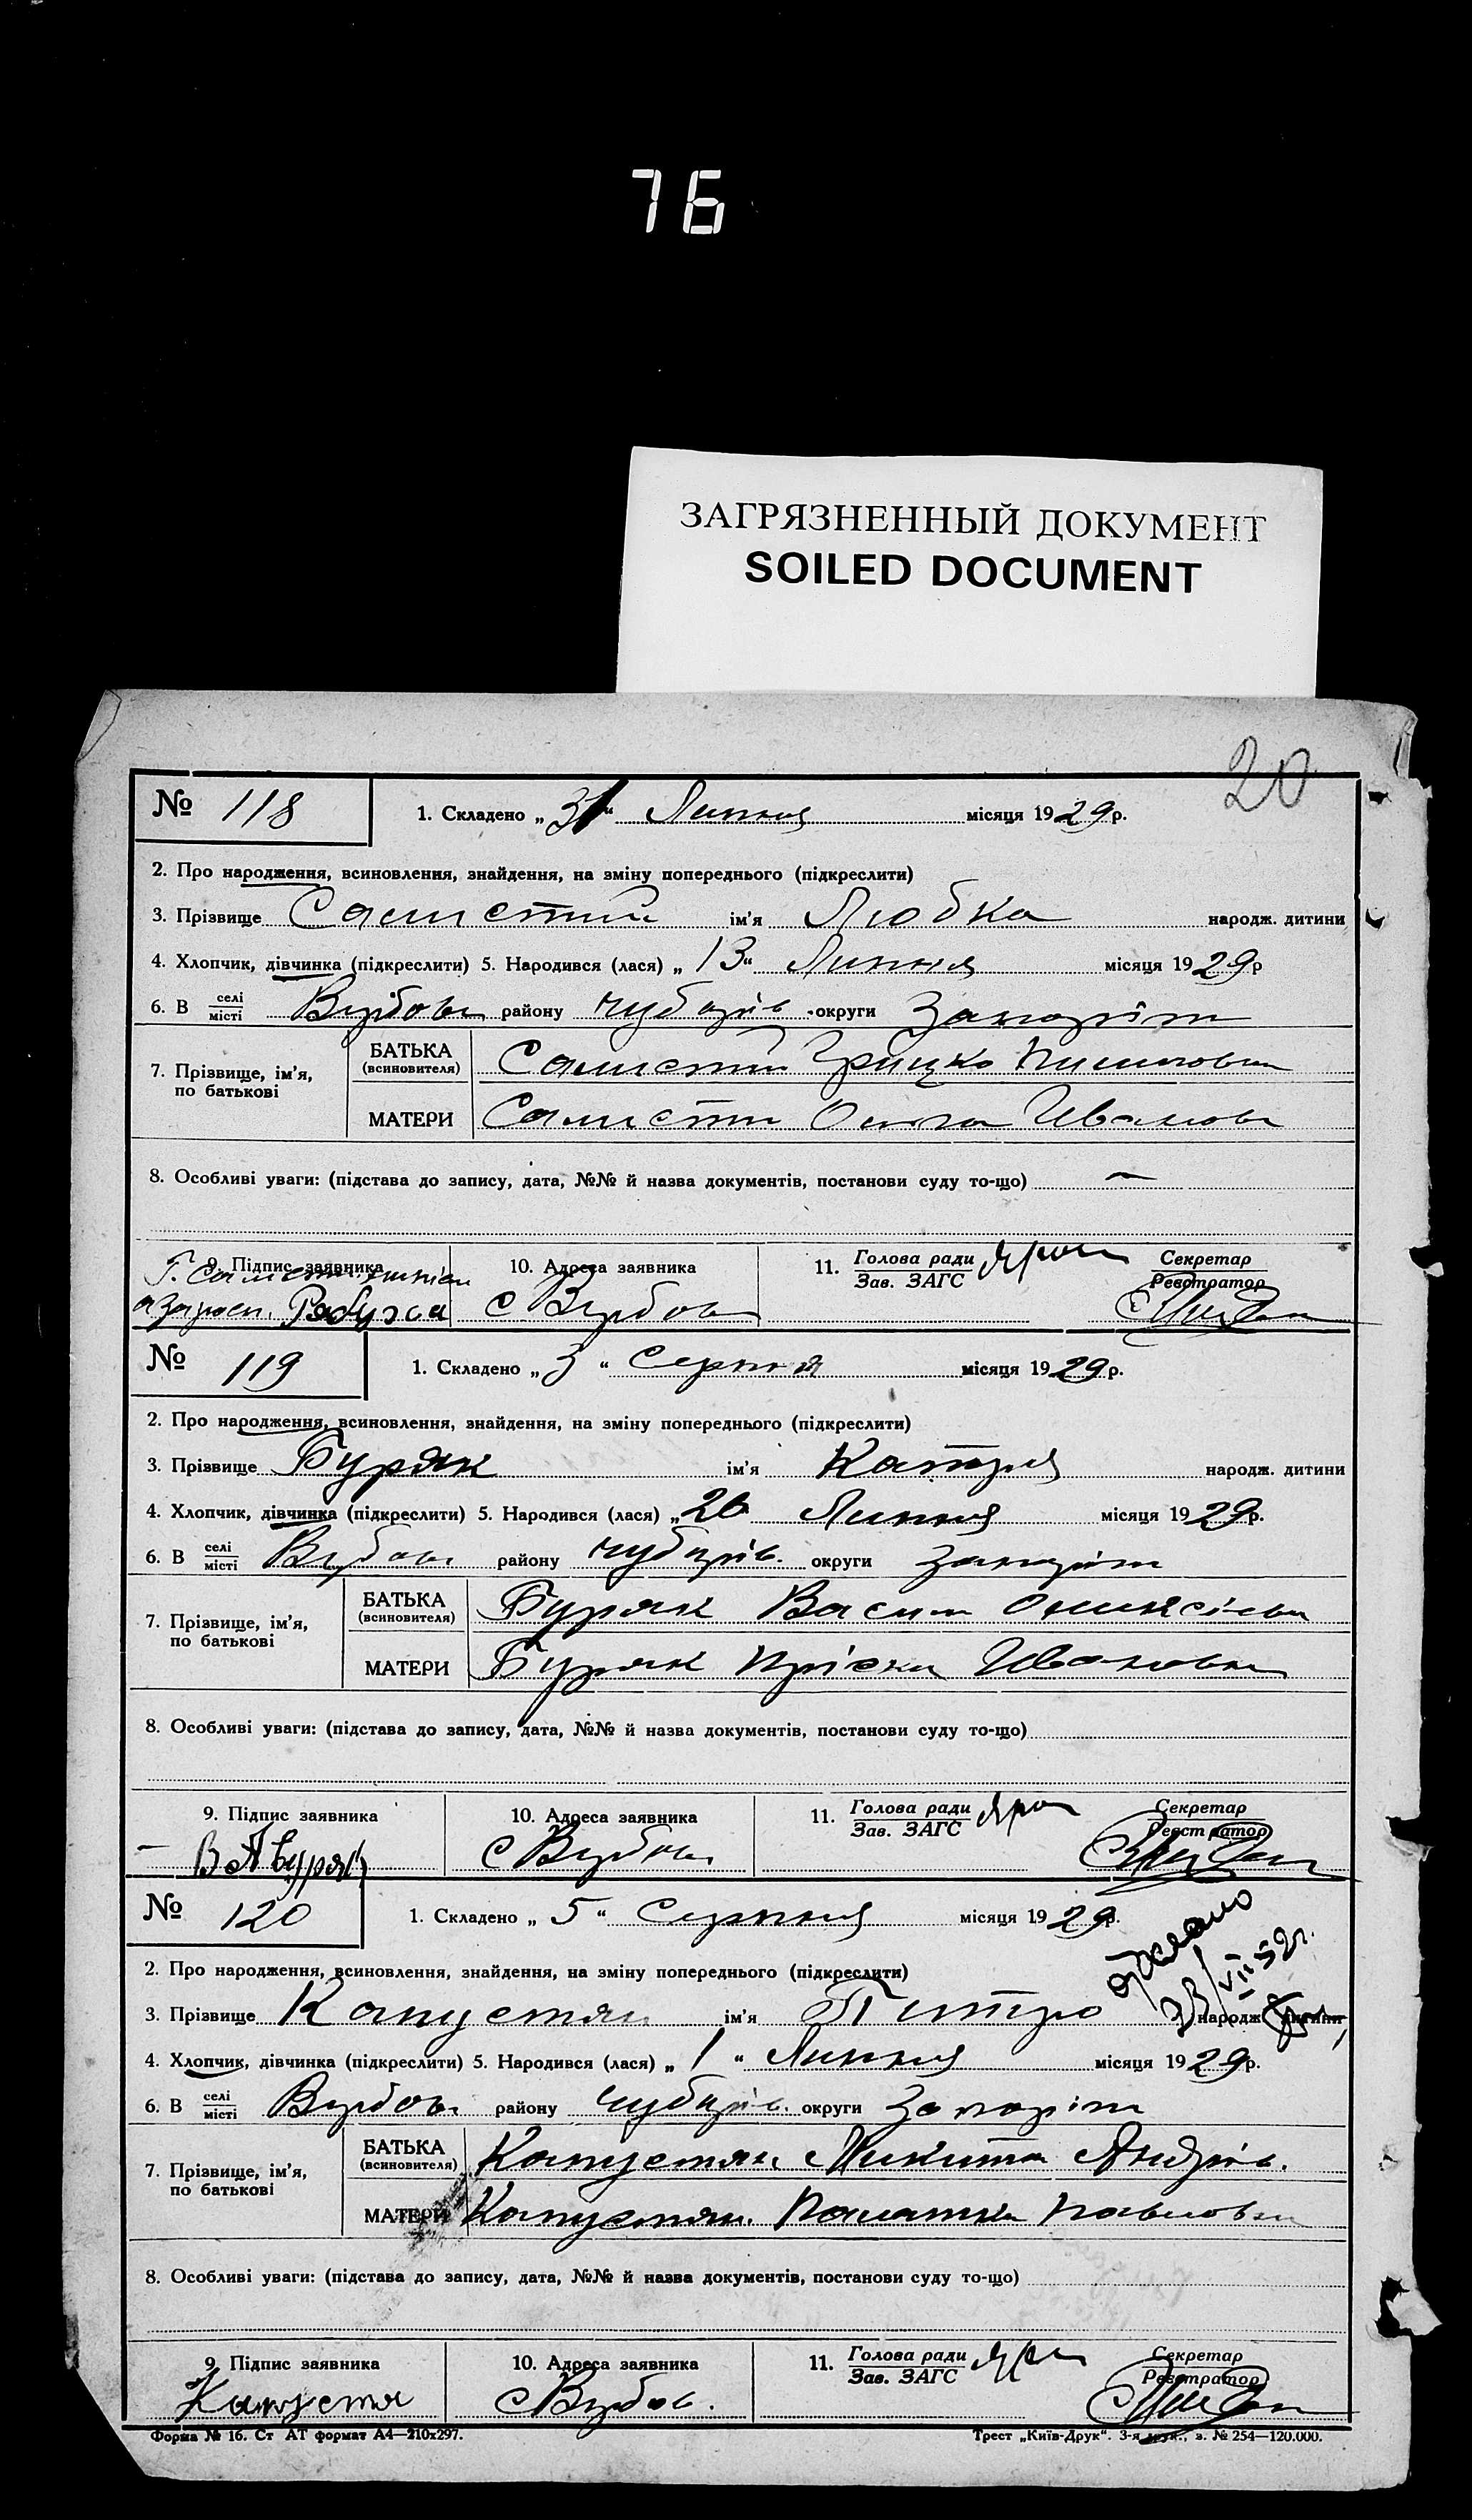 76
ЗАГРЯЗНЕННЫЙ ДОКУМЕНТ
SOILED DOCUMENT
20
№ 118 1. Складено „31“ Липня місяця 1929 р.
2. Про народження, всиновлення, знайдення, на зміну попереднього (підкреслити)
3. Прізвище ім'я Любка народж. дитини
4. Хлопчик, дівчинка (підкреслити) 5. Народився (лася) „13“ Липня місяця 1929 р
6. В селі/місті Вербов району Чубарів. округи Запоріж
7. Прізвище, ім'я, по батькові
БАТЬКА (всиновителя) Грицько
МАТЕРИ Ивановн
8. Особливі уваги: (підстава до запису, дата, №№ й назва документів, постанови суду то-що) —
9. Підпис заявника 10. Адреса заявника 11. Голова ради Зав. ЗАГС Секретар Реєстратор
с Вербов
№ 119 1. Складено „3“ Серпня місяця 1929 р.
2. Про народження, всиновлення, знайдення, на зміну попереднього (підкреслити)
3. Прізвище Буряк ім'я Катря народж. дитини
4. Хлопчик, дівчинка (підкреслити) 5. Народився (лася) „26 Липня місяця 1929 р.
6. В селі/місті Вербов району Чубарів. округи Запоріж
7. Прізвище, ім'я, по батькові
БАТЬКА (всиновителя) Буряк Васил
МАТЕРИ Буряк Пріська Ивановн
8. Особливі уваги: (підстава до запису, дата, №№ й назва документів, постанови суду то-що)
9. Підпис заявника 10. Адреса заявника 11. Голова ради Зав. ЗАГС Секретар Реєстратор
Буряк с Вербов
№ 120 1. Складено „5“ Серпня місяця 1929 р.
2. Про народження, всиновлення, знайдення, на зміну попереднього (підкреслити)
3. Прізвище Капустян ім'я Питро народж. дитини
4. Хлопчик, дівчинка (підкреслити) 5. Народився (лася) „1“ Липня місяця 1929 р.
6. В селі/місті Вербов. району Чубарів. округи Запоріж
7. Прізвище, ім'я, по батькові
БАТЬКА (всиновителя) Капустян Микита Андрів.
МАТЕРИ Капустян. Павловн
8. Особливі уваги: (підстава до запису, дата, №№ й назва документів, постанови суду то-що)
9. Підпис заявника 10. Адреса заявника 11. Голова ради Зав. ЗАГС Секретар Реєстратор
Капустя с Вербов.
Форма № 16. Ст АТ формат А4—210х297. Трест „Київ-Друк“. 3-я друк., з. № 254—120.000.